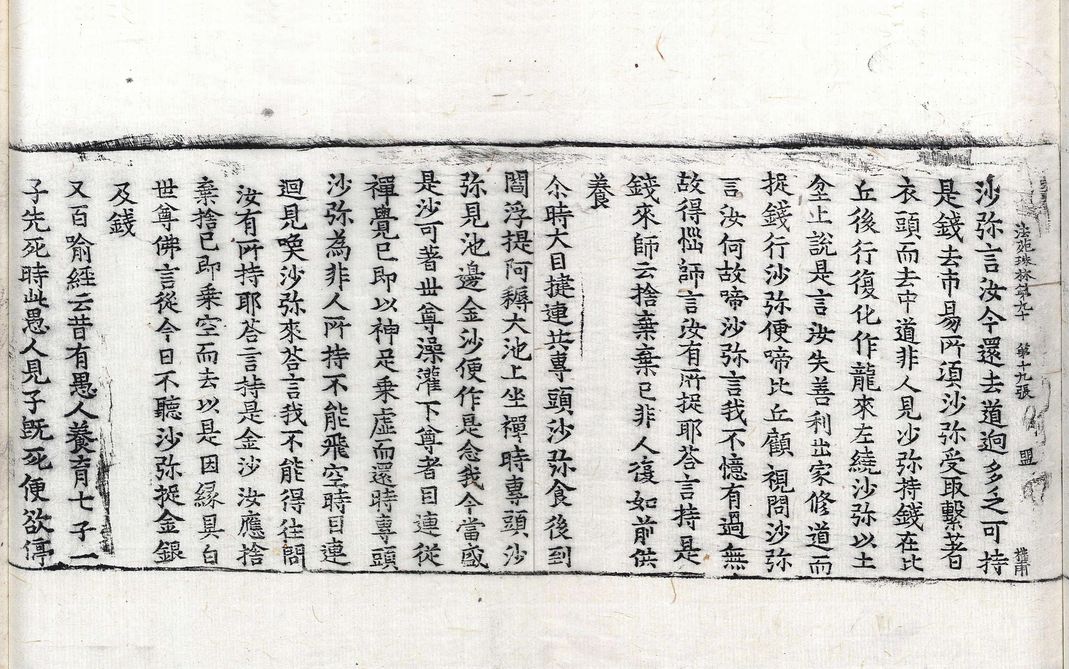 法苑珠林第九十　第十九張　盟
沙弥言汝今還去道逈多乏可持
是錢去市易所須沙弥受取繫著
衣頭而去中道非人見沙弥持錢在比
丘後行復化作龍來左繞沙弥以土
坌上說是言汝失善利出家修道而
捉錢行沙弥便啼比丘顧視問沙弥
言汝何故啼沙弥言我不憶有過無
故得惱師言汝有所捉耶荅言持是
錢來師云捨棄棄已非人復如前供
養
尒時大目揵連共專頭沙弥食後到
閻浮提阿耨大池上坐禪時專頭沙
弥見池邊金沙便作是念我今當盛
是沙可著世尊澡灌下尊者目連從
禪覺已即以神足乗虛而還時專頭
沙弥為非人所持不能飛空時目連
迴見喚沙弥來荅言我不能得往問
汝有所持耶荅言持是金沙汝應捨
棄捨已即乗空而去以是因緣具白
世尊佛言從今日不聽沙弥捉金銀
及錢
又百喻經云昔有愚人養育七子一
子先死時此愚人見子旣死便欲停